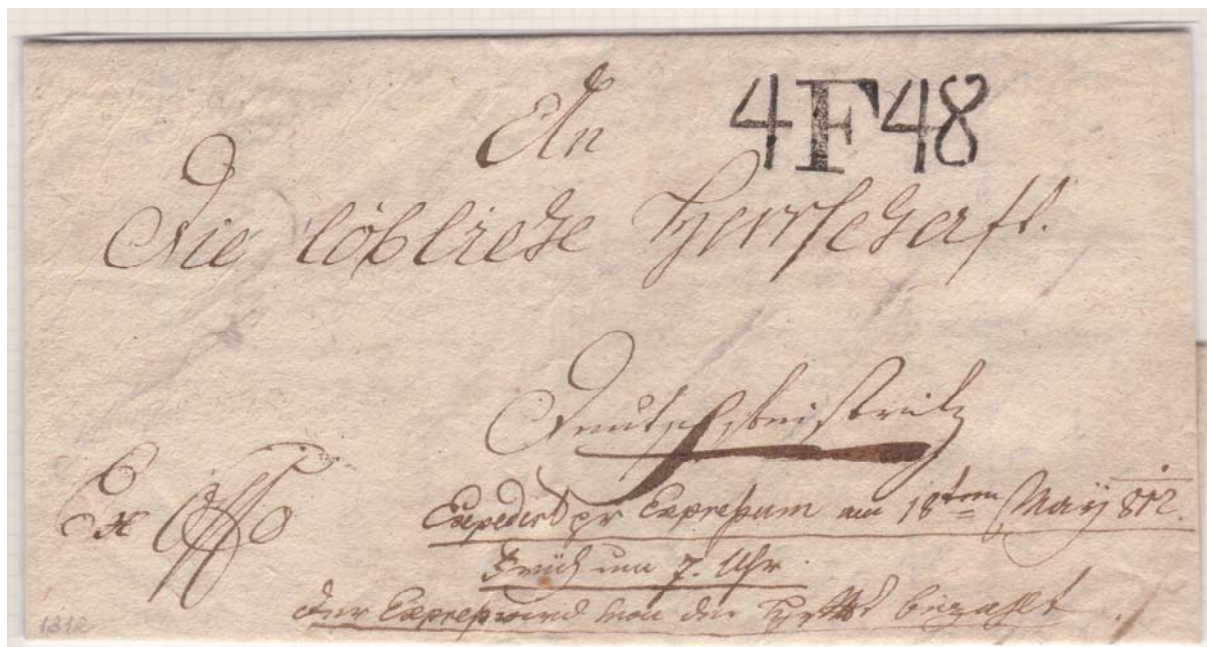 An 4 F 48
Die löbliche Herrschaft.
Deutschfeistritz
Ex Offo
Expedirt pr Expreßum am 18ten May 812.
Früh um 7. Uhr.
der Expreß wird von der bezahlt
1812